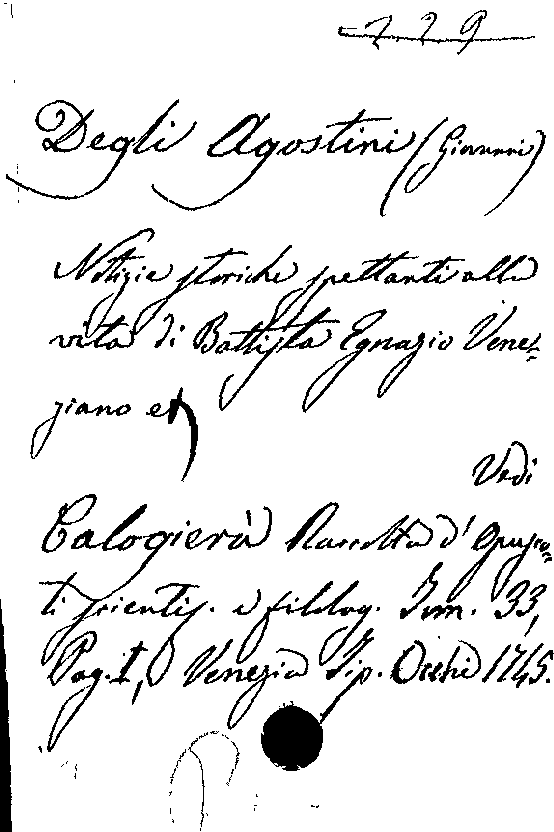 229
Degli Agostini (Giovanni)
Notizie storiche spettanti alla
vita di Battista Egnazio Vene-
ziano etc
Vedi
Calogierà Raccolta d' Opusco-
ti scientif. e filolog. Tom. 33,
Pag. 1, Venezia Tip. Occhi 1745.